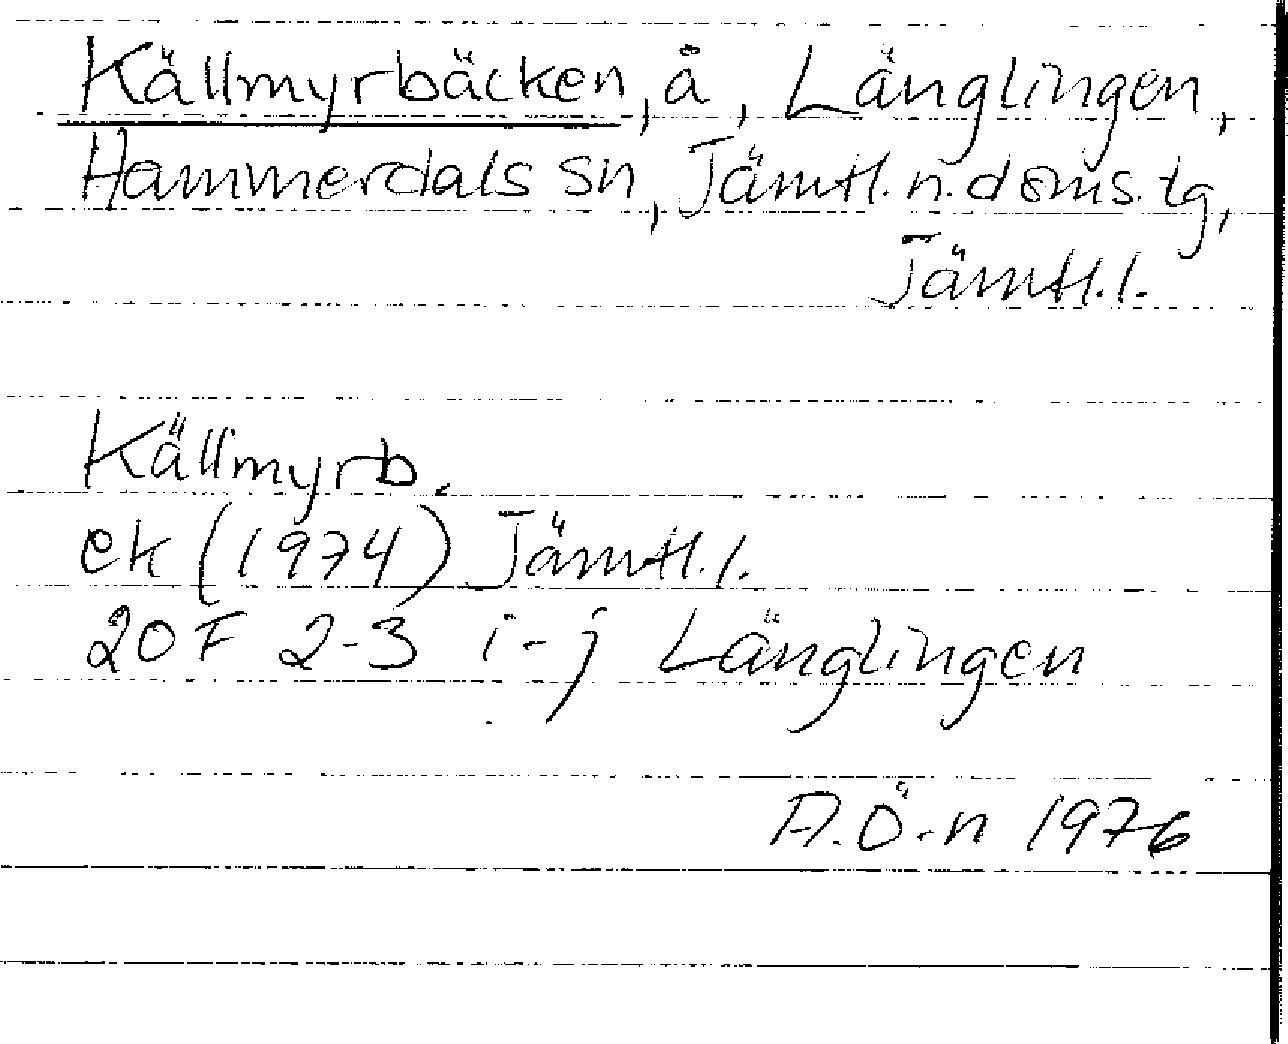 Källmyrbäcken, å, Länglingen,
Hammerdals sn, Jämtl. n. doms. tg,
Jämtl. l.
Källmyrb.
ek (1974) Jämtl. l.
20 F 2-3 i-j Länglingen
A.Ö-n 1976